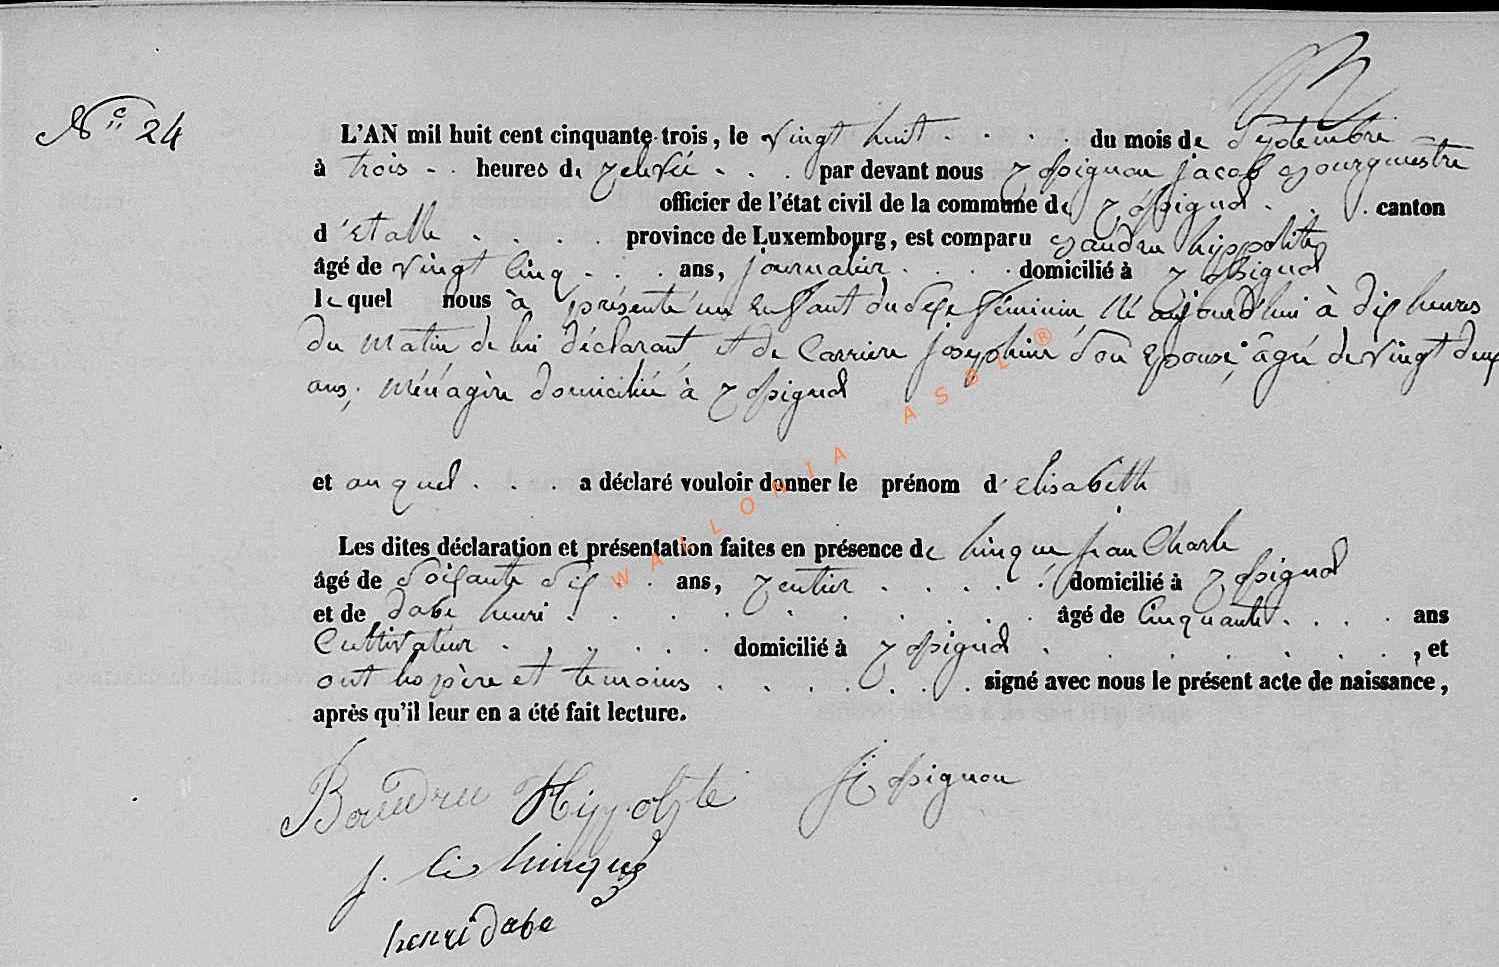 N° 24
L'AN mil huit cent cinquante trois, le vingt huit . . . . du mois de Septembre
à trois . . heures de relevée . . . par devant nous Rossignon Jacob Bourguestre
officier de l'état civil de la commune de Rossignol . . . canton
d'Etalle . . . . province de Luxembourg, est comparu Baudru hippolite
âgé de vingt cinq . . . ans, journalier . . . . domicilié à Rossignol
lequel nous à présenté un Enfant du sexe féminin, né aujourd'hui à dix heures
du matin de lui déclarant, et de Carrière joséphine son Epouse, âgée de vingt deux
ans, ménagère domiciliée à Rossignol
et auquel . . . a déclaré vouloir donner le prénom d'élisabeth
Les dites déclaration et présentation faites en présence de hinque jean Charle
âgé de soixante dix . . ans, rentier . . . . . domicilié à Rossignol
et de dabe henri . . . . . . . . . âgé de Cinquante . . . . ans
Cultivateur . . . . . . domicilié à Rossignol . . . . . . . , et
ont les père et temoins . . . . . . . signé avec nous le présent acte de naissance,
après qu'il leur en a été fait lecture.
Baudru Hippolyte J Rossignon
j. C. hinque
henri dabe
WALLONIA ASBL ®